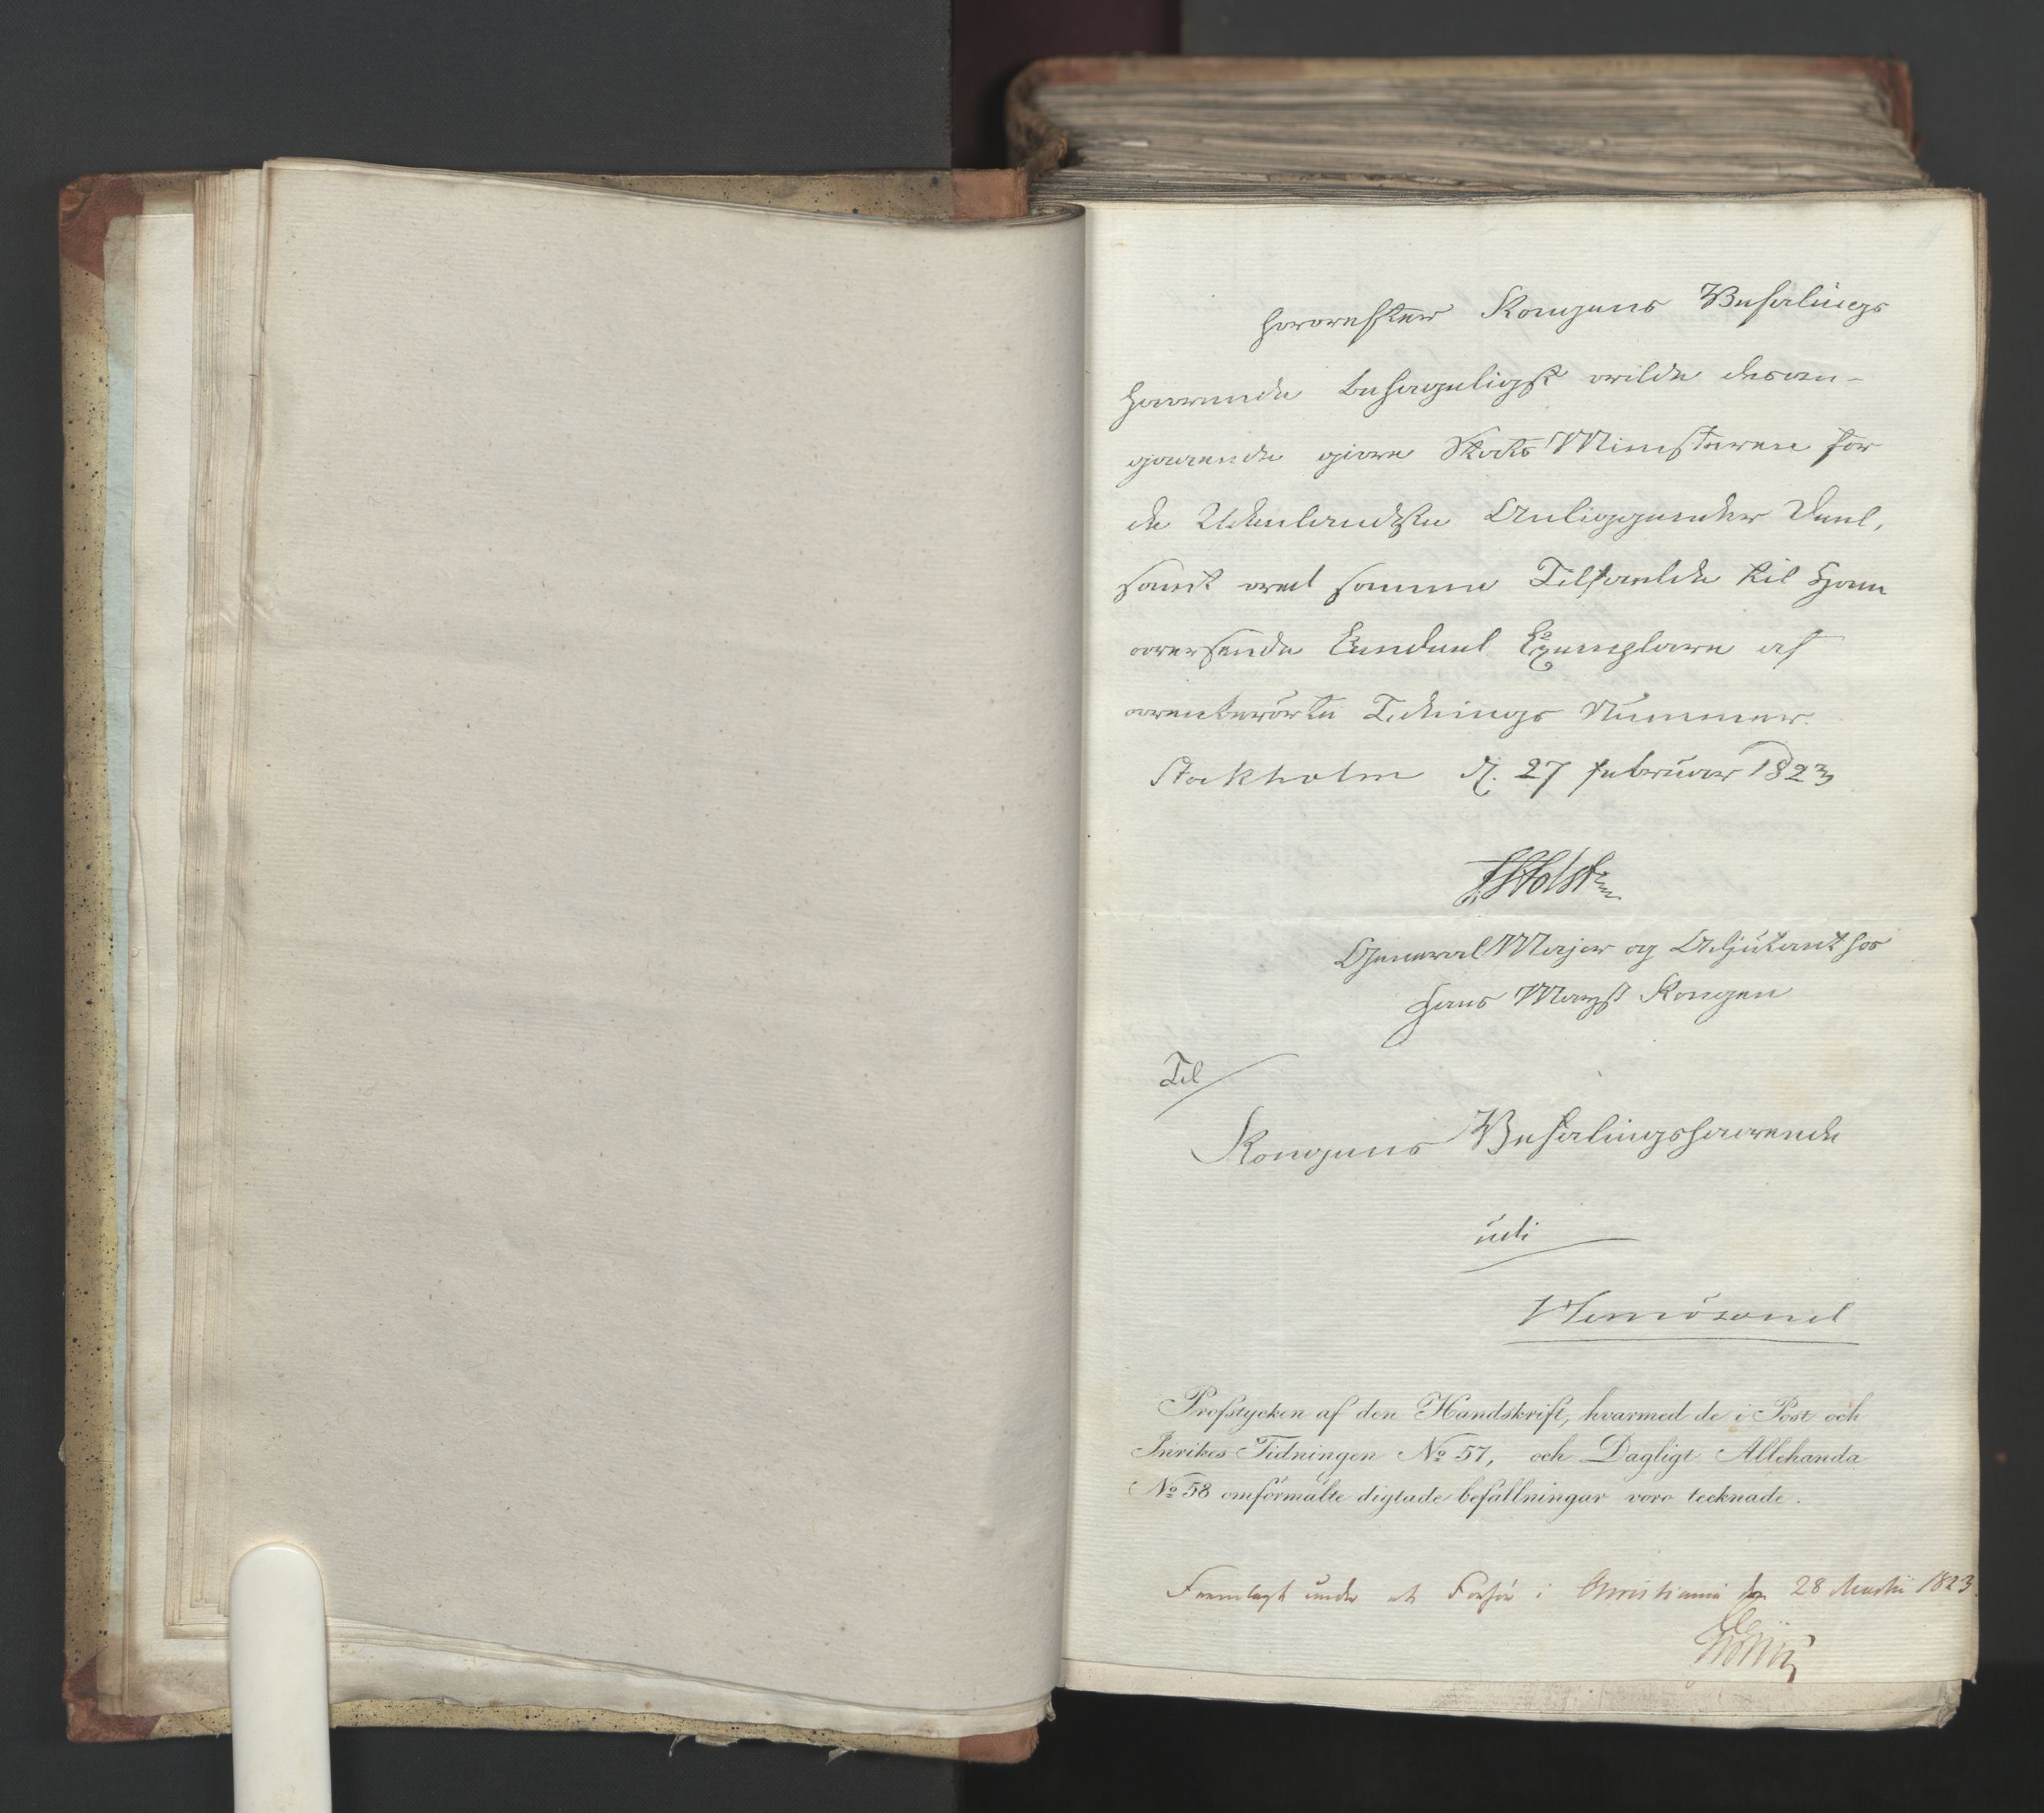 hvorefter Kongens Befalings
havende behageligst vilde desan-
gaaende give Stats Ministeren for
de Udenlandske Anliggender Deel,
samt ved samme Tilfælde til Ham
oversende Eendeel Exemplare af
ovenberörte Tidnings Nummer.
Stockholm d. 27 Februar 1823
Holst
General Major og Adjutant hos
Hans Majst Kongen
Til
Kongens Befalingshavende
udi
Hernösand
Profstycken af den Handskrift, hvarmed de i Post och
Inrikes Tidningen No 57, och Dagligt Allehanda
No 58 omförmälte digtade befallningar voro tecknade.
Fremlagt under et Forhör i Christiania den 28 Martii 1823.